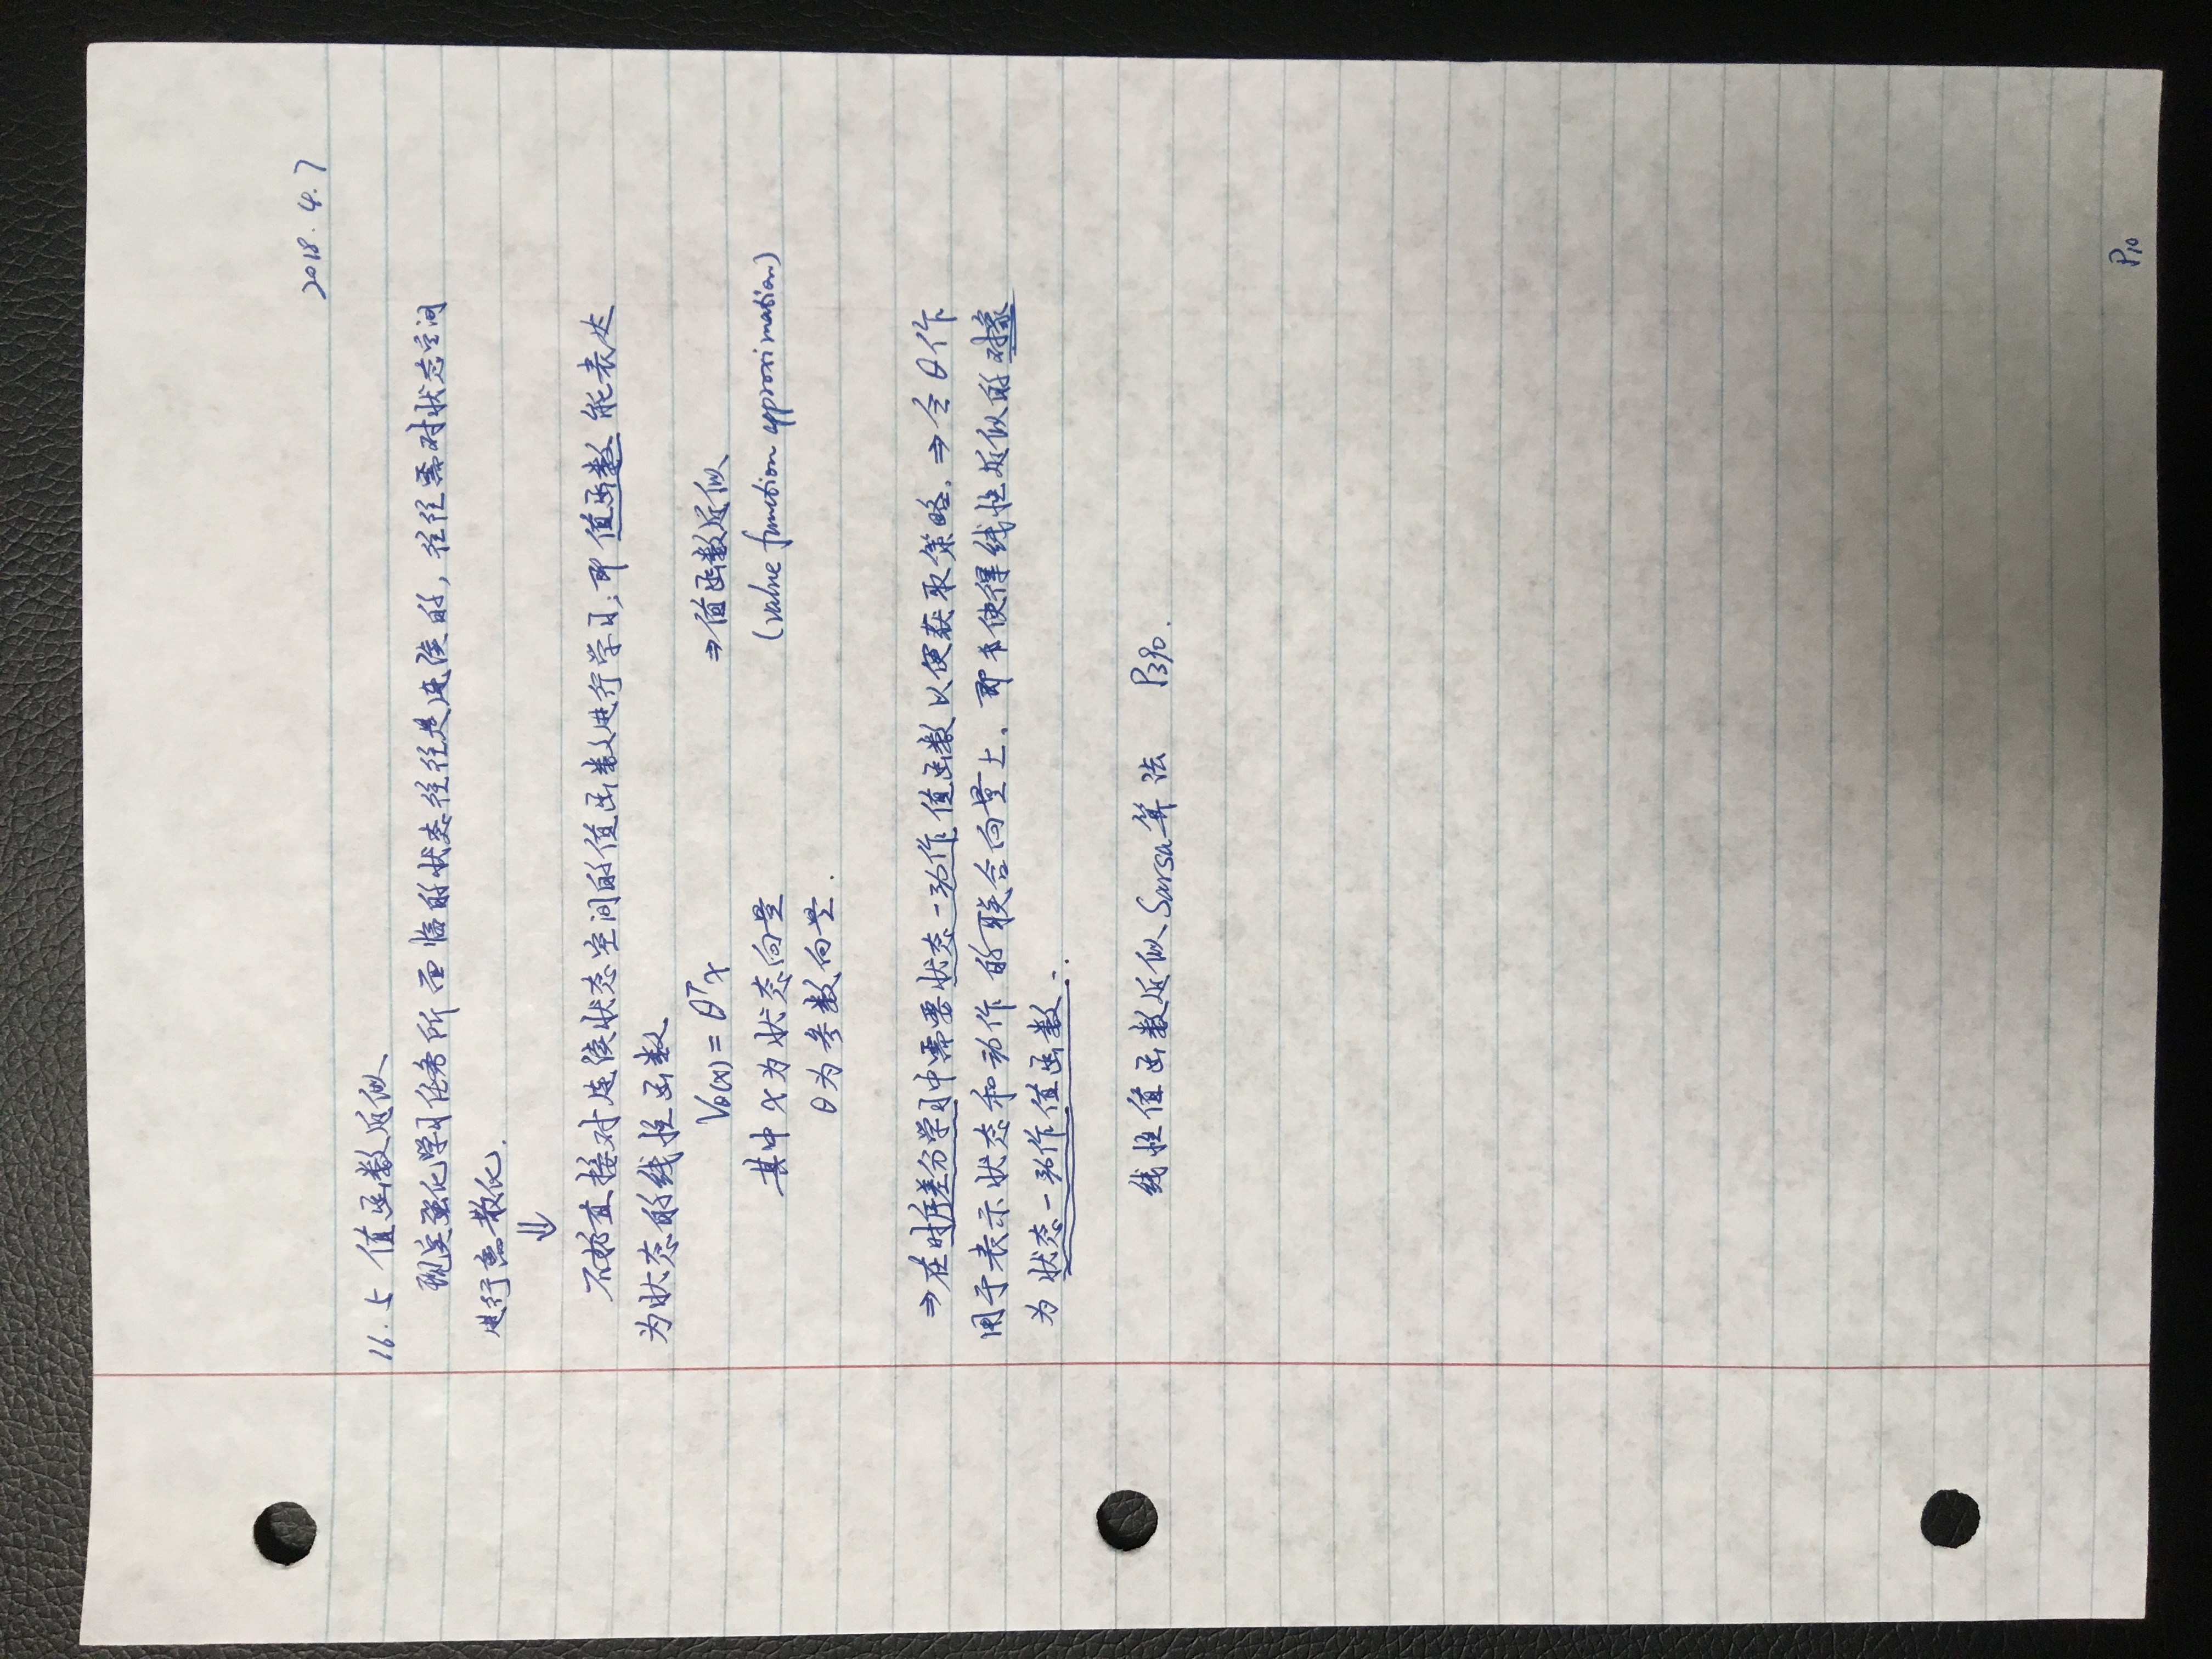 2018.4.7
16.5 值函数近似
现实强化学习任务所面临的状态往往是连续的，往往需对状态空间
进行离散化.
⇓
不妨直接对连续状态空间的值函数进行学习；即值函数能表达
为状态的线性函数
Vθ(x) = θᵀx ⇒值函数近似
其中 x 为状态向量 (value function approximation)
θ为参数向量.
⇒在时序差分学习中需要状态-动作值函数以便获取策略. ⇒ 令θ作
用于表示状态和动作的联合向量上. 即 使得线性近似的对象
为状态-动作值函数.
线性值函数近似Sarsa算法 P390.
P10